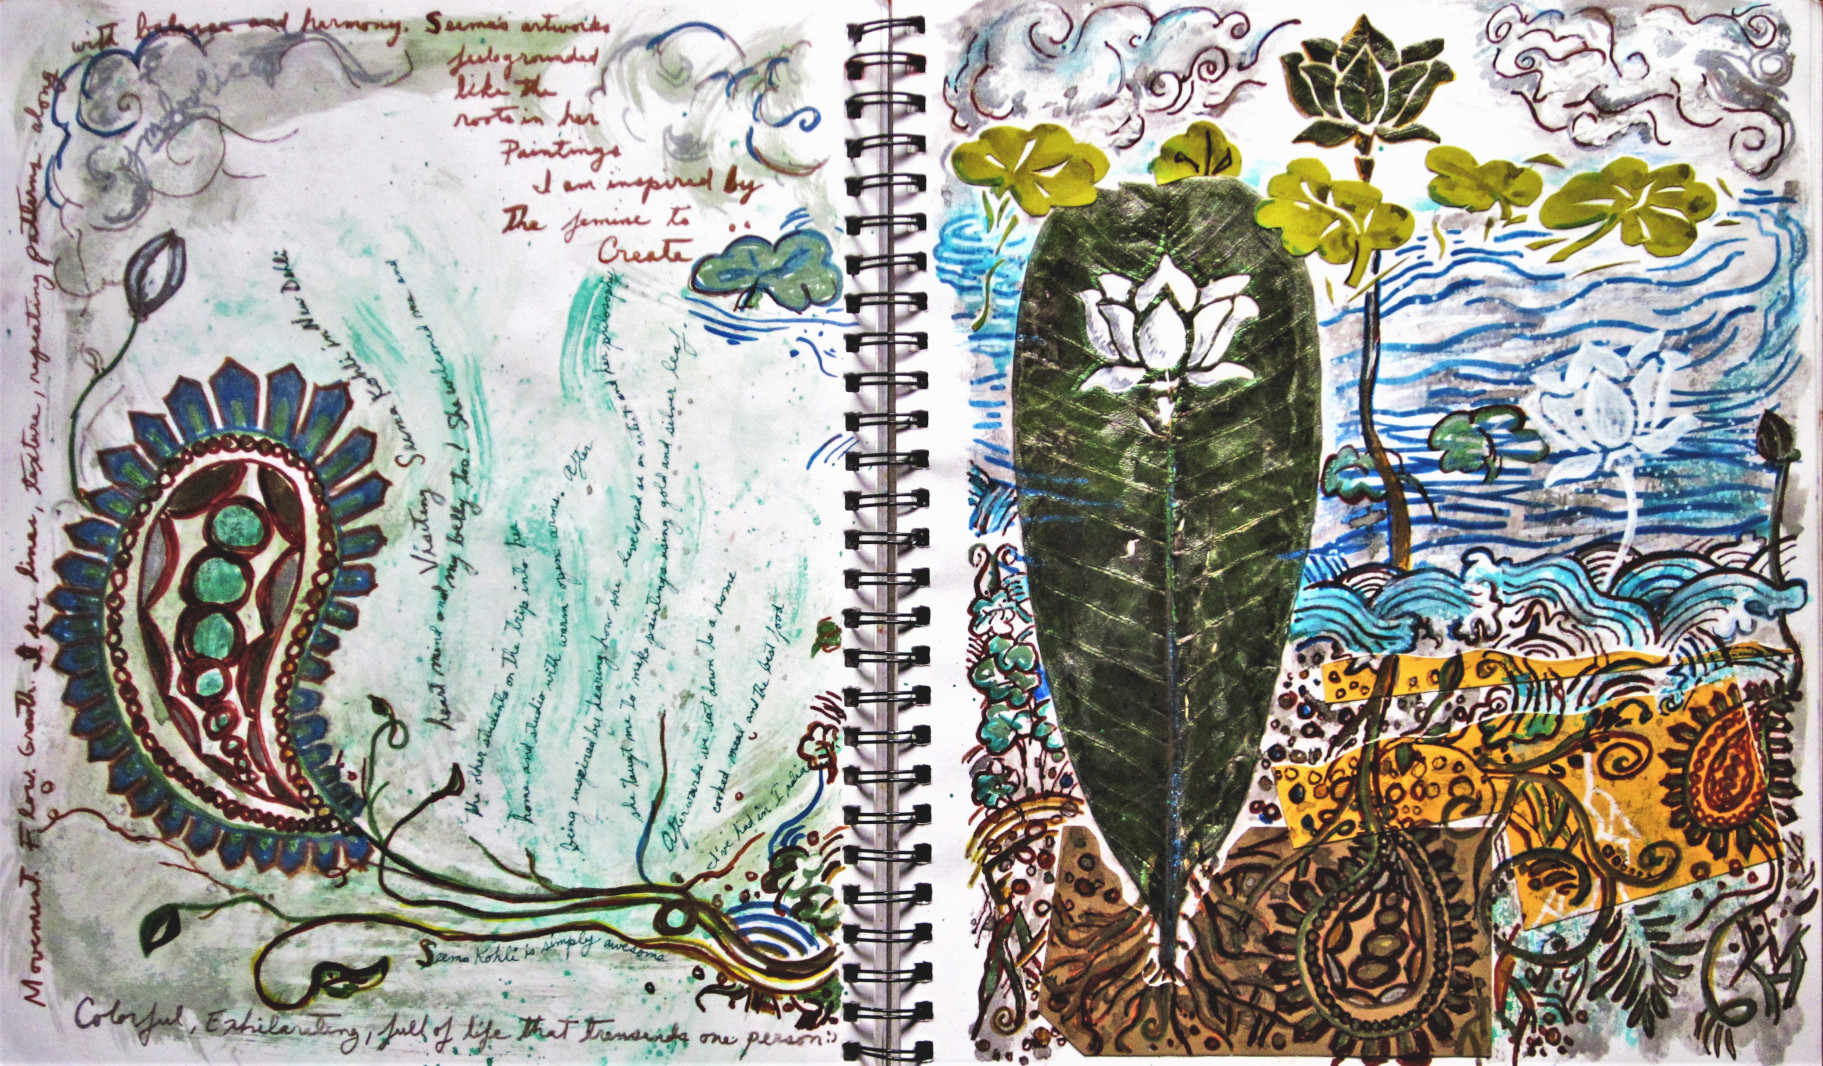 Movement. Flow. Growth. I see line, texture, repeating patterns along
with balance and harmony. Seema's artworks
feels grounded
like the
roots in her
Paintings
I am inspired by
the femine to
Create
Visiting Seema Kohli in New Dehli
heart mind and my belly too! She welcomed me and
the other students on the trip into her
home and studio with warm open arms. After
being inspired by hearing how she developed as an artist and her philosophy
she taught me to make paintings using gold and silver leaf.
Afterwards we sat down to a home
cooked meal and the best food
I've had in India
Seema Kohli is simply awesome
Colorful, Exhilarating, full of life that transends one person:)